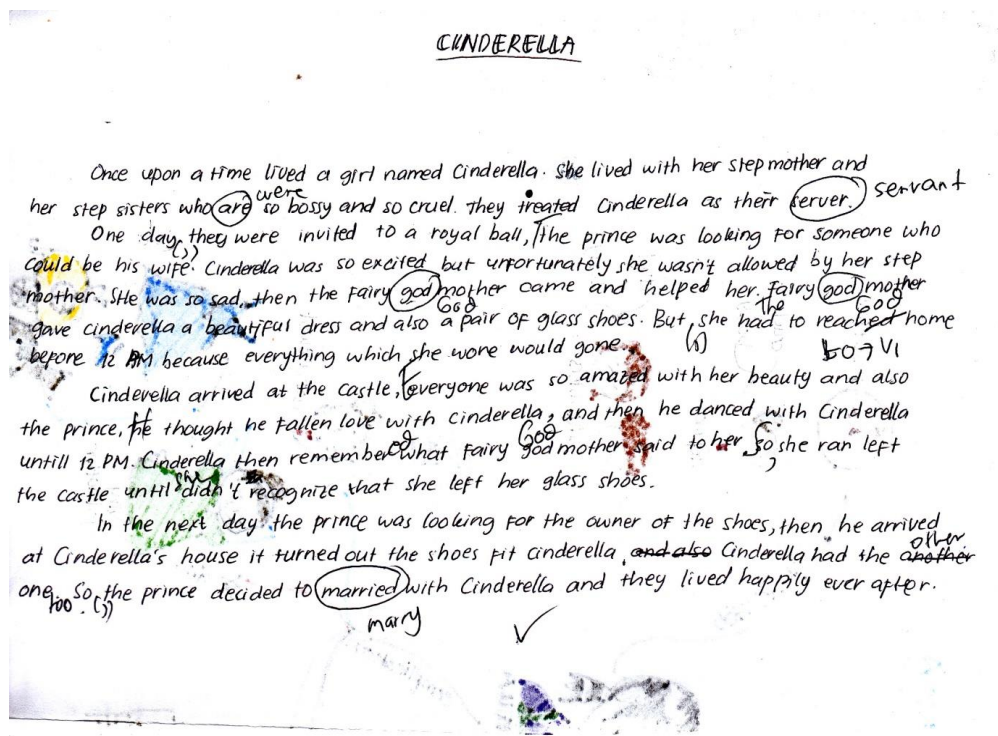 CINDERELLA
Once upon a time lived a girl named Cinderella. She lived with her step mother and
her step sisters who are were so bossy and so cruel. They treated Cinderella as their server. servant
One day, they were invited to a royal ball, The prince was looking for someone who
(,)
could be his wife. Cinderella was so excited but unfortunately she wasn't allowed by her step
mother. She was so sad, then the Fairy god mother came and helped her. Fairy god mother
God the God
gave cinderella a beautiful dress and also a pair of glass shoes. But, she had to reached home
(,) to → V1
before 12 PM because everything which she wore would gone.
Cinderella arrived at the castle, Everyone was so amazed with her beauty and also
the prince, He thought he fallen love with cinderella, and then he danced with Cinderella
ed God
untill 12 PM. Cinderella then remember what Fairy god mother said to her, So she ran left
she
the castle until didn't recognize that she left her glass shoes.
In the next day the prince was looking for the owner of the shoes, then he arrived
other
at Cinderella's house it turned out the shoes fit cinderella, and also Cinderella had the another
one. So, the prince decided to married with Cinderella and they lived happily ever after.
too. (,)
marry